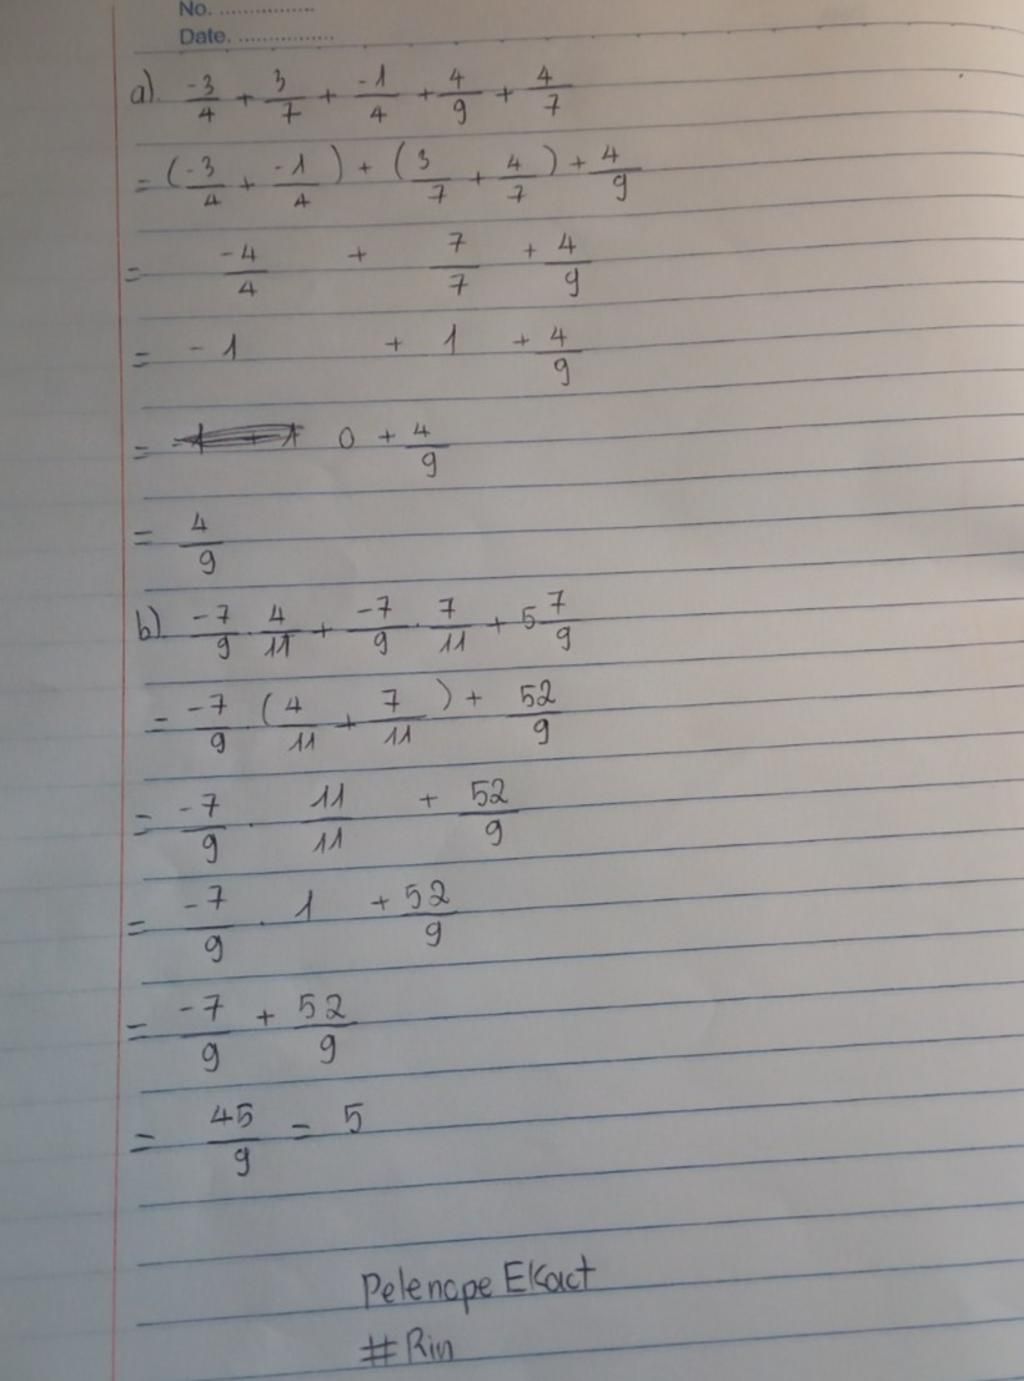 No. ...............
Date. ...............
a) -3/4 + 3/7 + -1/4 + 4/9 + 4/7
= (-3/4 + -1/4) + (3/7 + 4/7) + 4/9
= -4/4 + 7/7 + 4/9
= -1 + 1 + 4/9
= 0 + 4/9
= 4/9
b) -7/9 . 4/11 + -7/9 . 7/11 + 5 7/9
= -7/9 (4/11 + 7/11) + 52/9
= -7/9 . 11/11 + 52/9
= -7/9 . 1 + 52/9
= -7/9 + 52/9
= 45/9 = 5
Pelenope EKact
#Rin